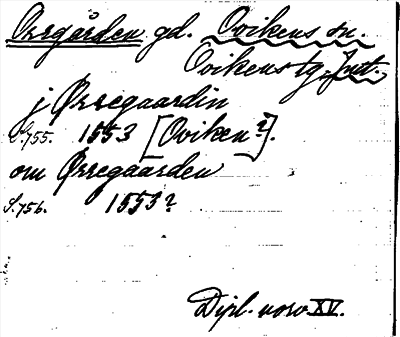 Orrgården gd. Ovikens sn.
Ovikens tg. Jmt.
j Ørregaardin
S. 755. 1553 [Oviken?].
om Ørregaarden
S. 756. 1553?
Dipl. norv. XV.